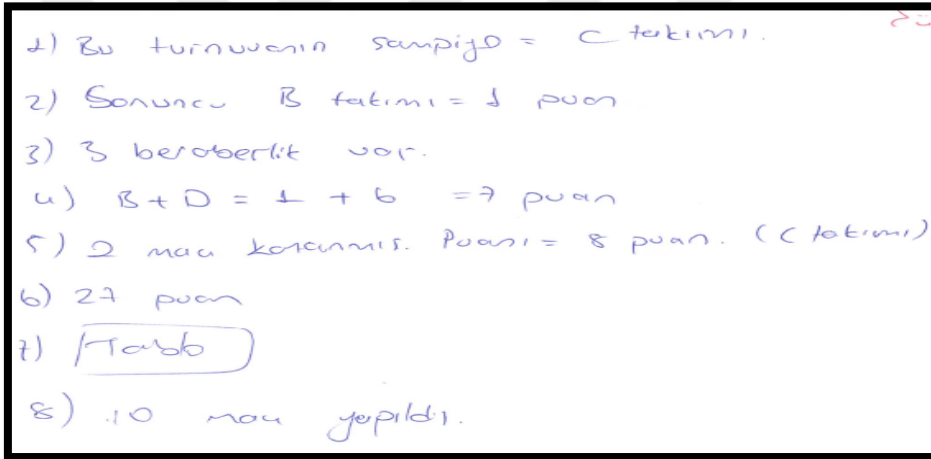 1) Bu turnuvanın şampiyo = C takımı.
2) Sonuncu B takımı = 1 puan
3) 3 beraberlik var.
4) B + D = 1 + 6 = 7 puan
5) 2 maç kazanmış. Puanı = 8 puan. (C takımı)
6) 27 puan
7) Tablo
8) 10 maç yapıldı.